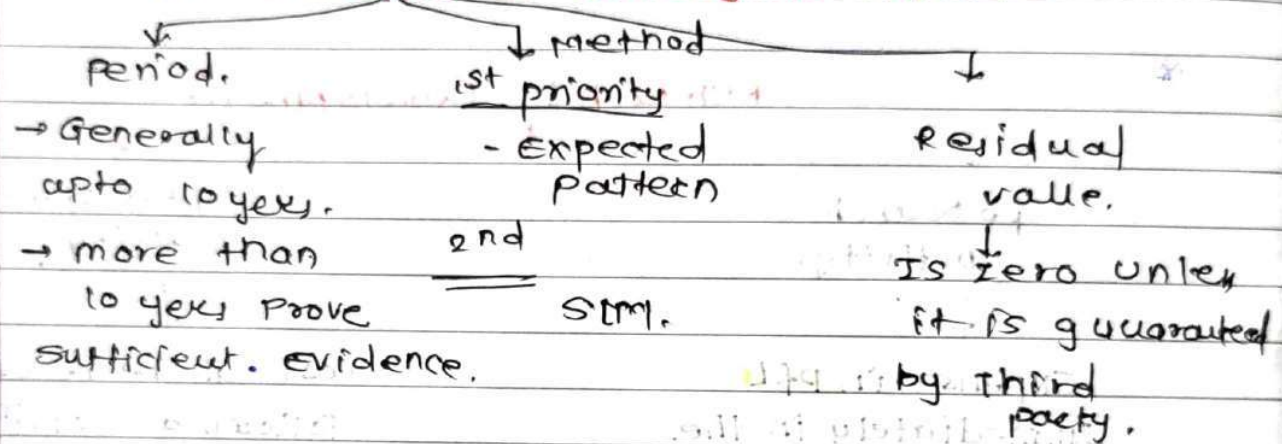 Period.
→ Generally
upto 10 yers.
→ more than
10 yers Prove
sufficient. Evidence.
Method
1st priority
- Expected
Pattern
2nd
SLM.
Residual
value.
Is zero unless
it is guaranteed
by Third
party.